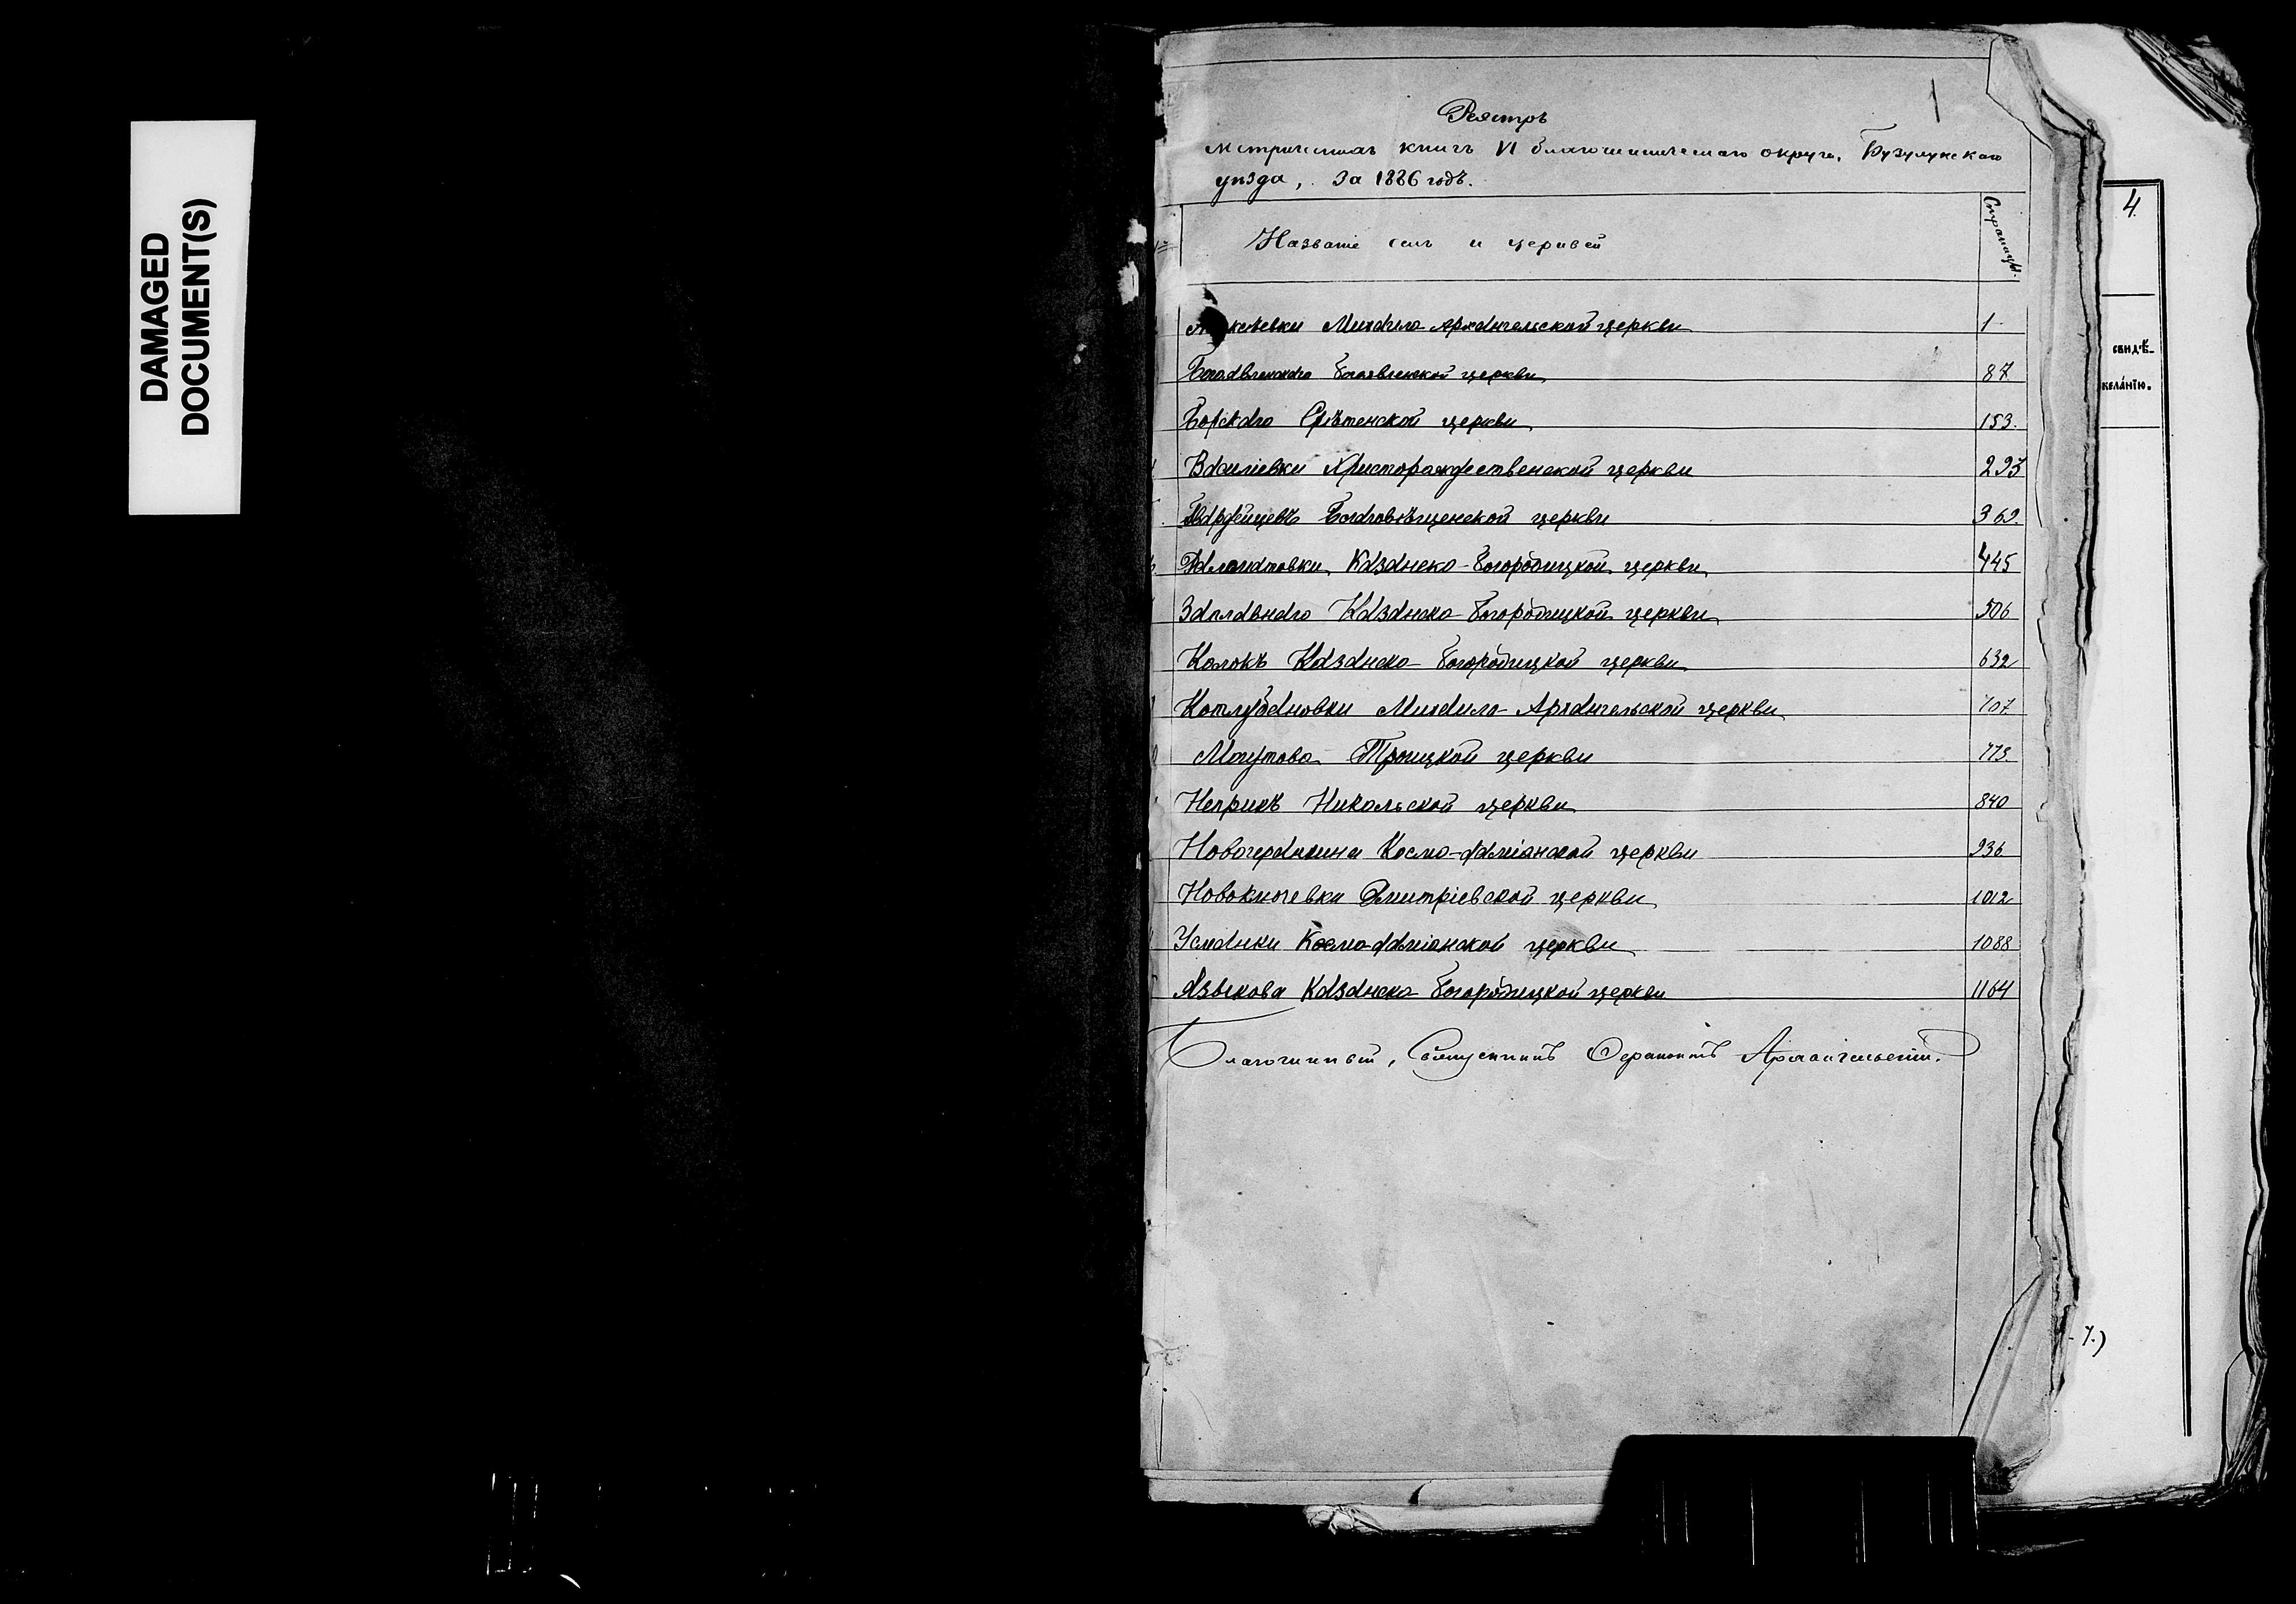 DAMAGED
DOCUMENT(S)
1
Реэстръ
метрическихъ книгъ VI благочинническаго округа, Бузулукскаго
уѣзда, за 1886 годъ.
Названіе селъ и церквей
Страницы.
Михаило-Архангельской церкви 1
Богоявленской церкви 87
Борскаго Срѣтенской церкви 153.
Василіевки Христорождественской церкви 293
Гвардейцевъ Благовѣщенской церкви 369.
Казанско-Богородицкой церкви 445
Заплавнаго Казанско-Богородицкой церкви 506
Колокъ Казанско-Богородицкой церкви 632
Котлубановки Михаило-Архангельской церкви 707
Могутова Троицкой церкви 773.
Неприкъ Никольской церкви 840
Новогеранкина Космо-Даміанской церкви 936
Новоключевки Димитріевской церкви 1012
Усманки Космо-Даміанской церкви 1088
Языкова Казанско-Богородицкой церкви 1164
Благочинный, Священникъ Архангельскій.
4.
свидѣ-
желанію.